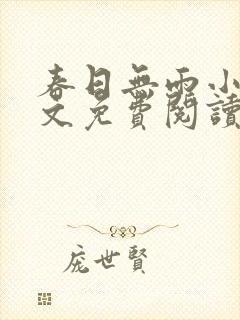 春日無雨小
文免費閱讀
庞世賢